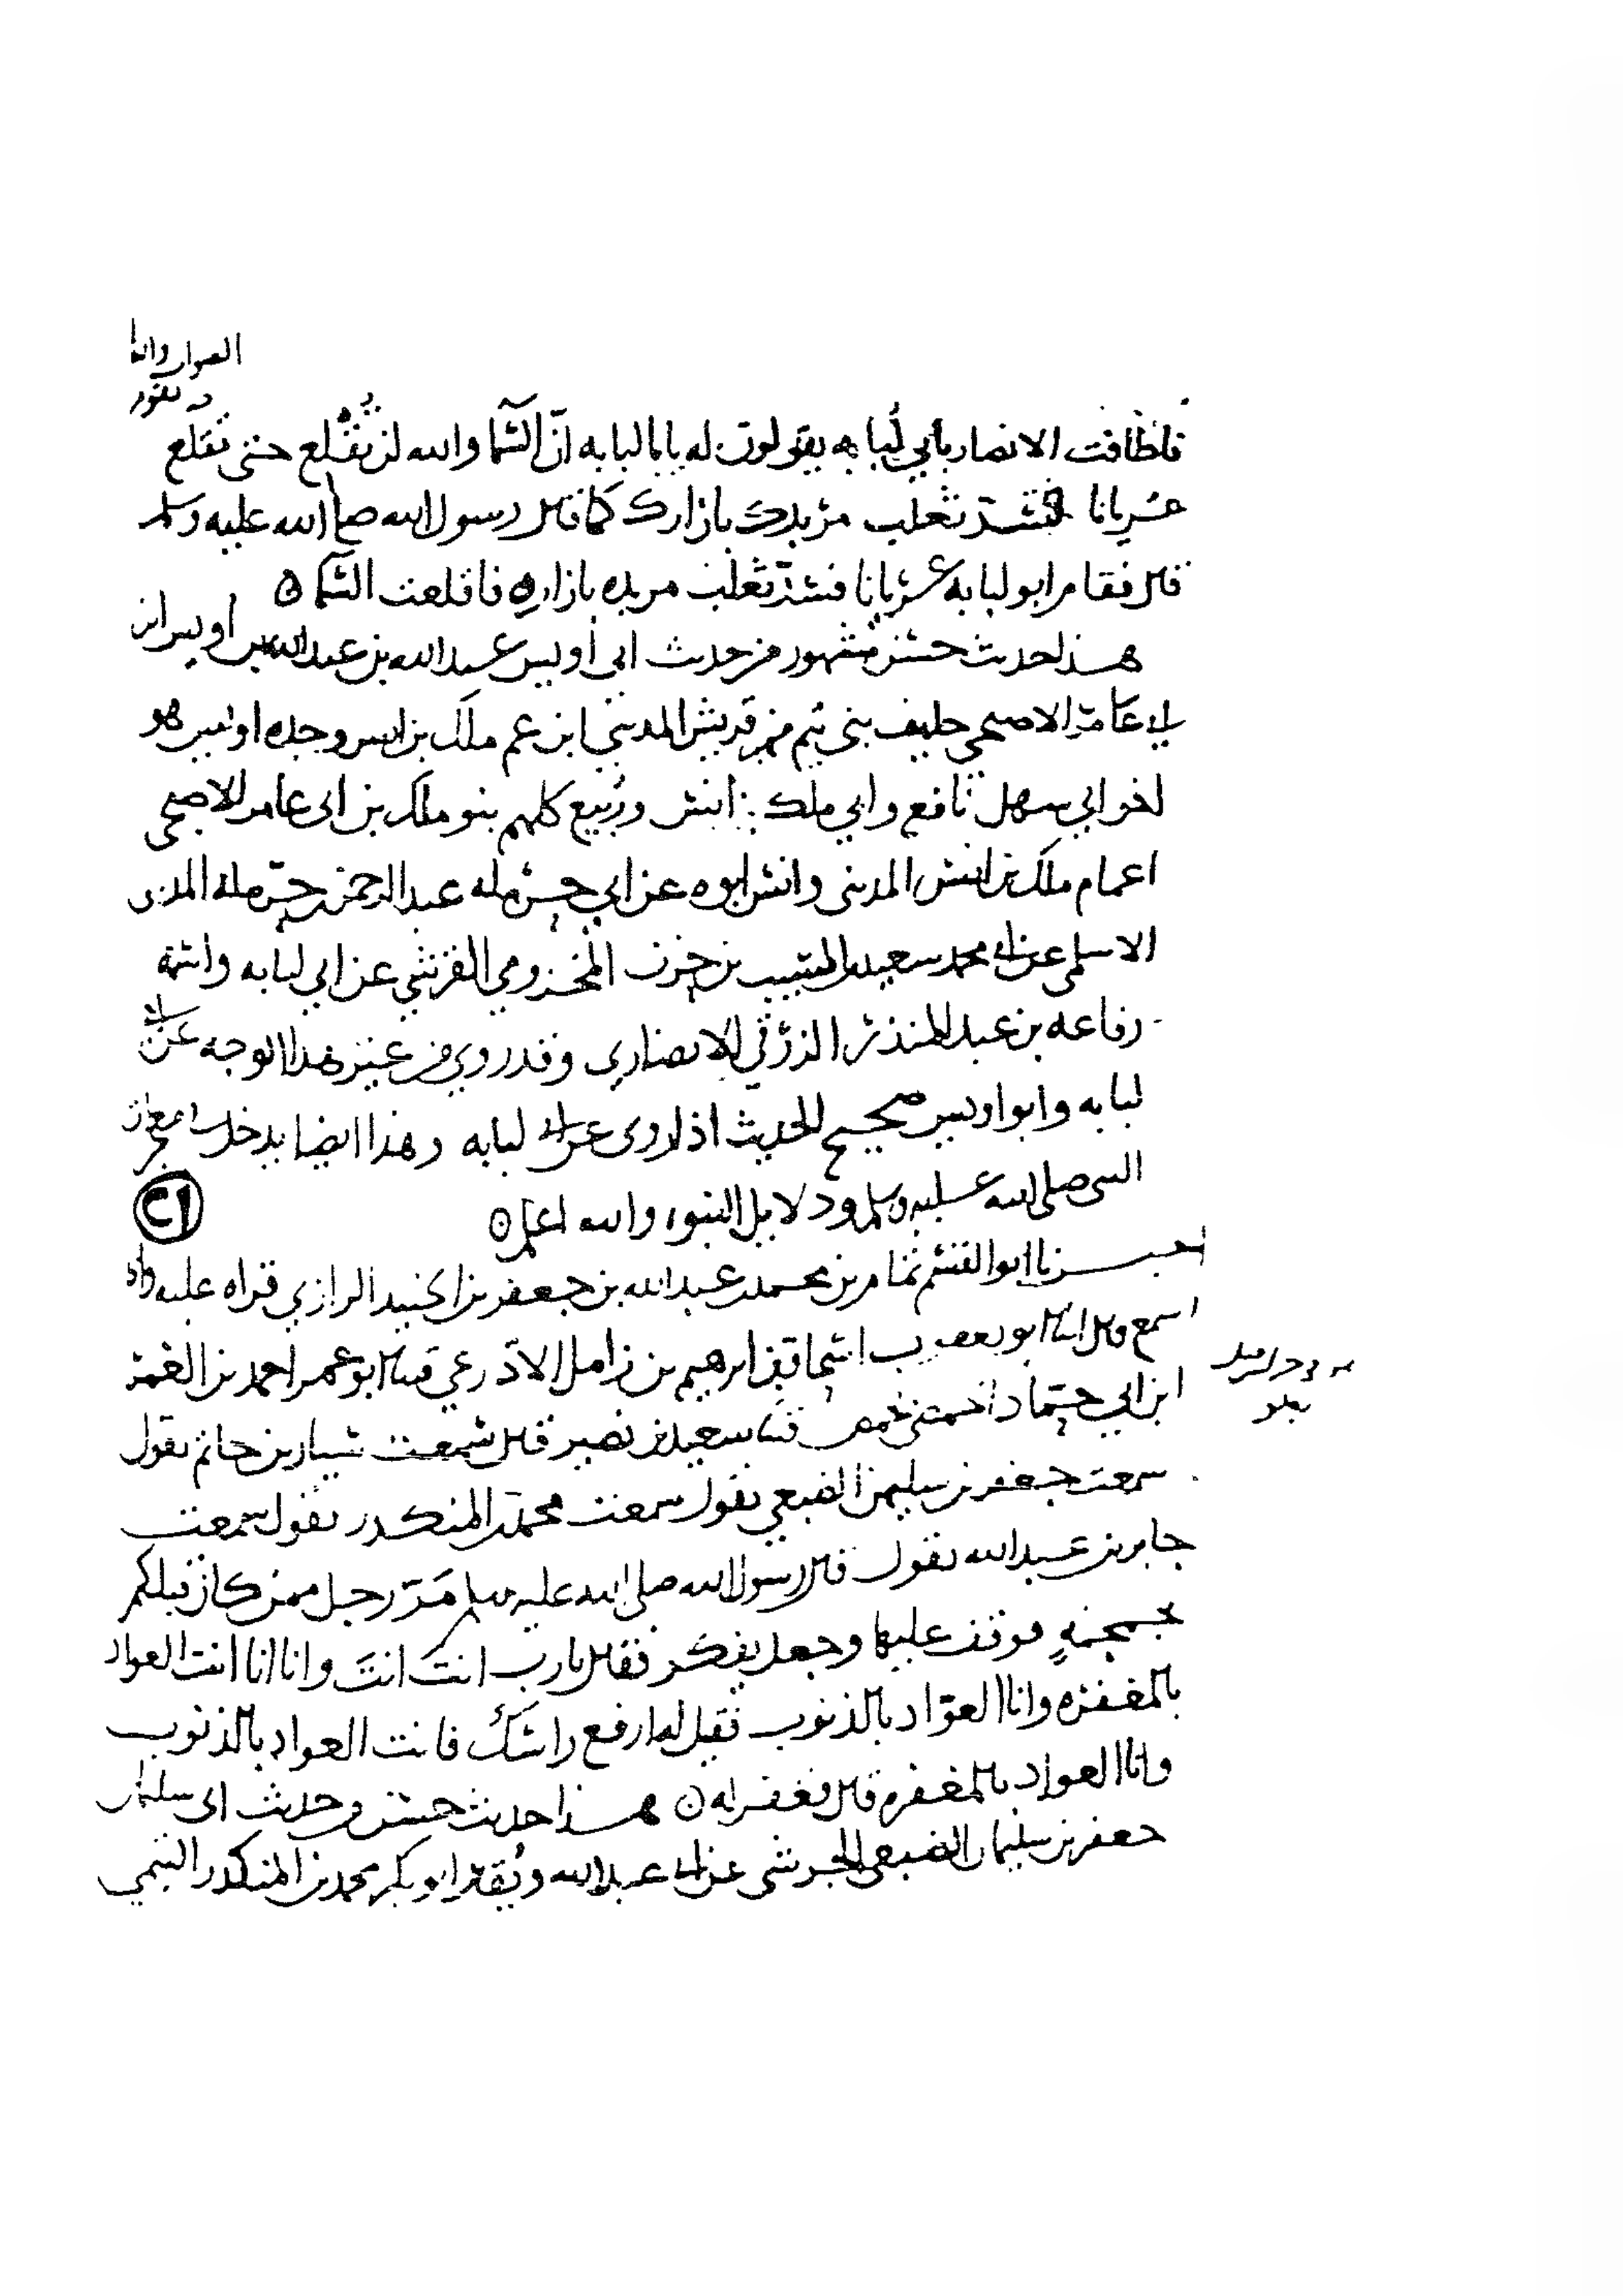 فاطافت الانصار بابي لبابه يقولون له يابا لبابه ان السما والله لن تقلع حتى تقلع
عريانا فتسد ثعلب مربدك بازارك كما قال رسول الله صلى الله عليه وسلم
قال فقام ابو لبابه عريانا فسد ثعلب مربده بازاره فاقلعت السما ه
هذا حديث حسن مشهور من حديث ابي اويس عبد الله بن عبد الله بن اويس ابن
ابي عامر الاصبحي حليف بني تيم من قريش المديني ابن عم ملك بن انس وجده اويس هو
اخو ابي سهل نافع وابي ملك انس وربيع كلهم بنو ملك بن ابي عامر الاصبحي
اعمام ملك بن انس المديني وانس ابوه عن ابي حرمله عبد الرحمن بن حرمله المدني
الاسلمي عن ابي محمد سعيد بن المسيب بن حزن المخزومي القرشي عن ابي لبابه واسمه
رفاعه بن عبد المنذر الزرقي الانصاري وقد روي من غير هذا الوجه عن ابي
لبابه وابو اويس صحيح الحديث اذا روى عن ابي لبابه وهذا ايضا يدخل في معجزات
النبي صلى الله عليه وسلم ودلايل النبوه والله اعلم ه
اخبرنا ابو القسم تمام بن محمد بن عبد الله بن جعفر بن الجنيد الرازي قراه عليه وانا
اسمع قال انا ابو يعقوب اسحاق بن ابرهيم بن زامل الاذرعي قثنا ابو عمر احمد بن الغمر
ابن ابي حماد بحمص قثنا سعيد بن نصير قال سمعت سيار بن حاتم يقول
سمعت جعفر بن سليمن الضبعي يقول سمعت محمد بن المنكدر يقول سمعت
جابر بن عبد الله يقول قال رسول الله صلى الله عليه وسلم مر رجل ممن كان قبلكم
بجمجمة فوقف عليها وجعل يفكر فقال يارب انت انت وانا انا انت العواد
بالمغفره وانا العواد بالذنوب فقيل له ارفع راسك فانت العواد بالذنوب
وانا العواد بالمغفره قال فغفر له ه هذا حديث حسن من حديث ابي سليمان
جعفر بن سليمان الضبعي الحرشي عن ابي عبد الله ويقال ابو بكر محمد بن المنكدر التيمي